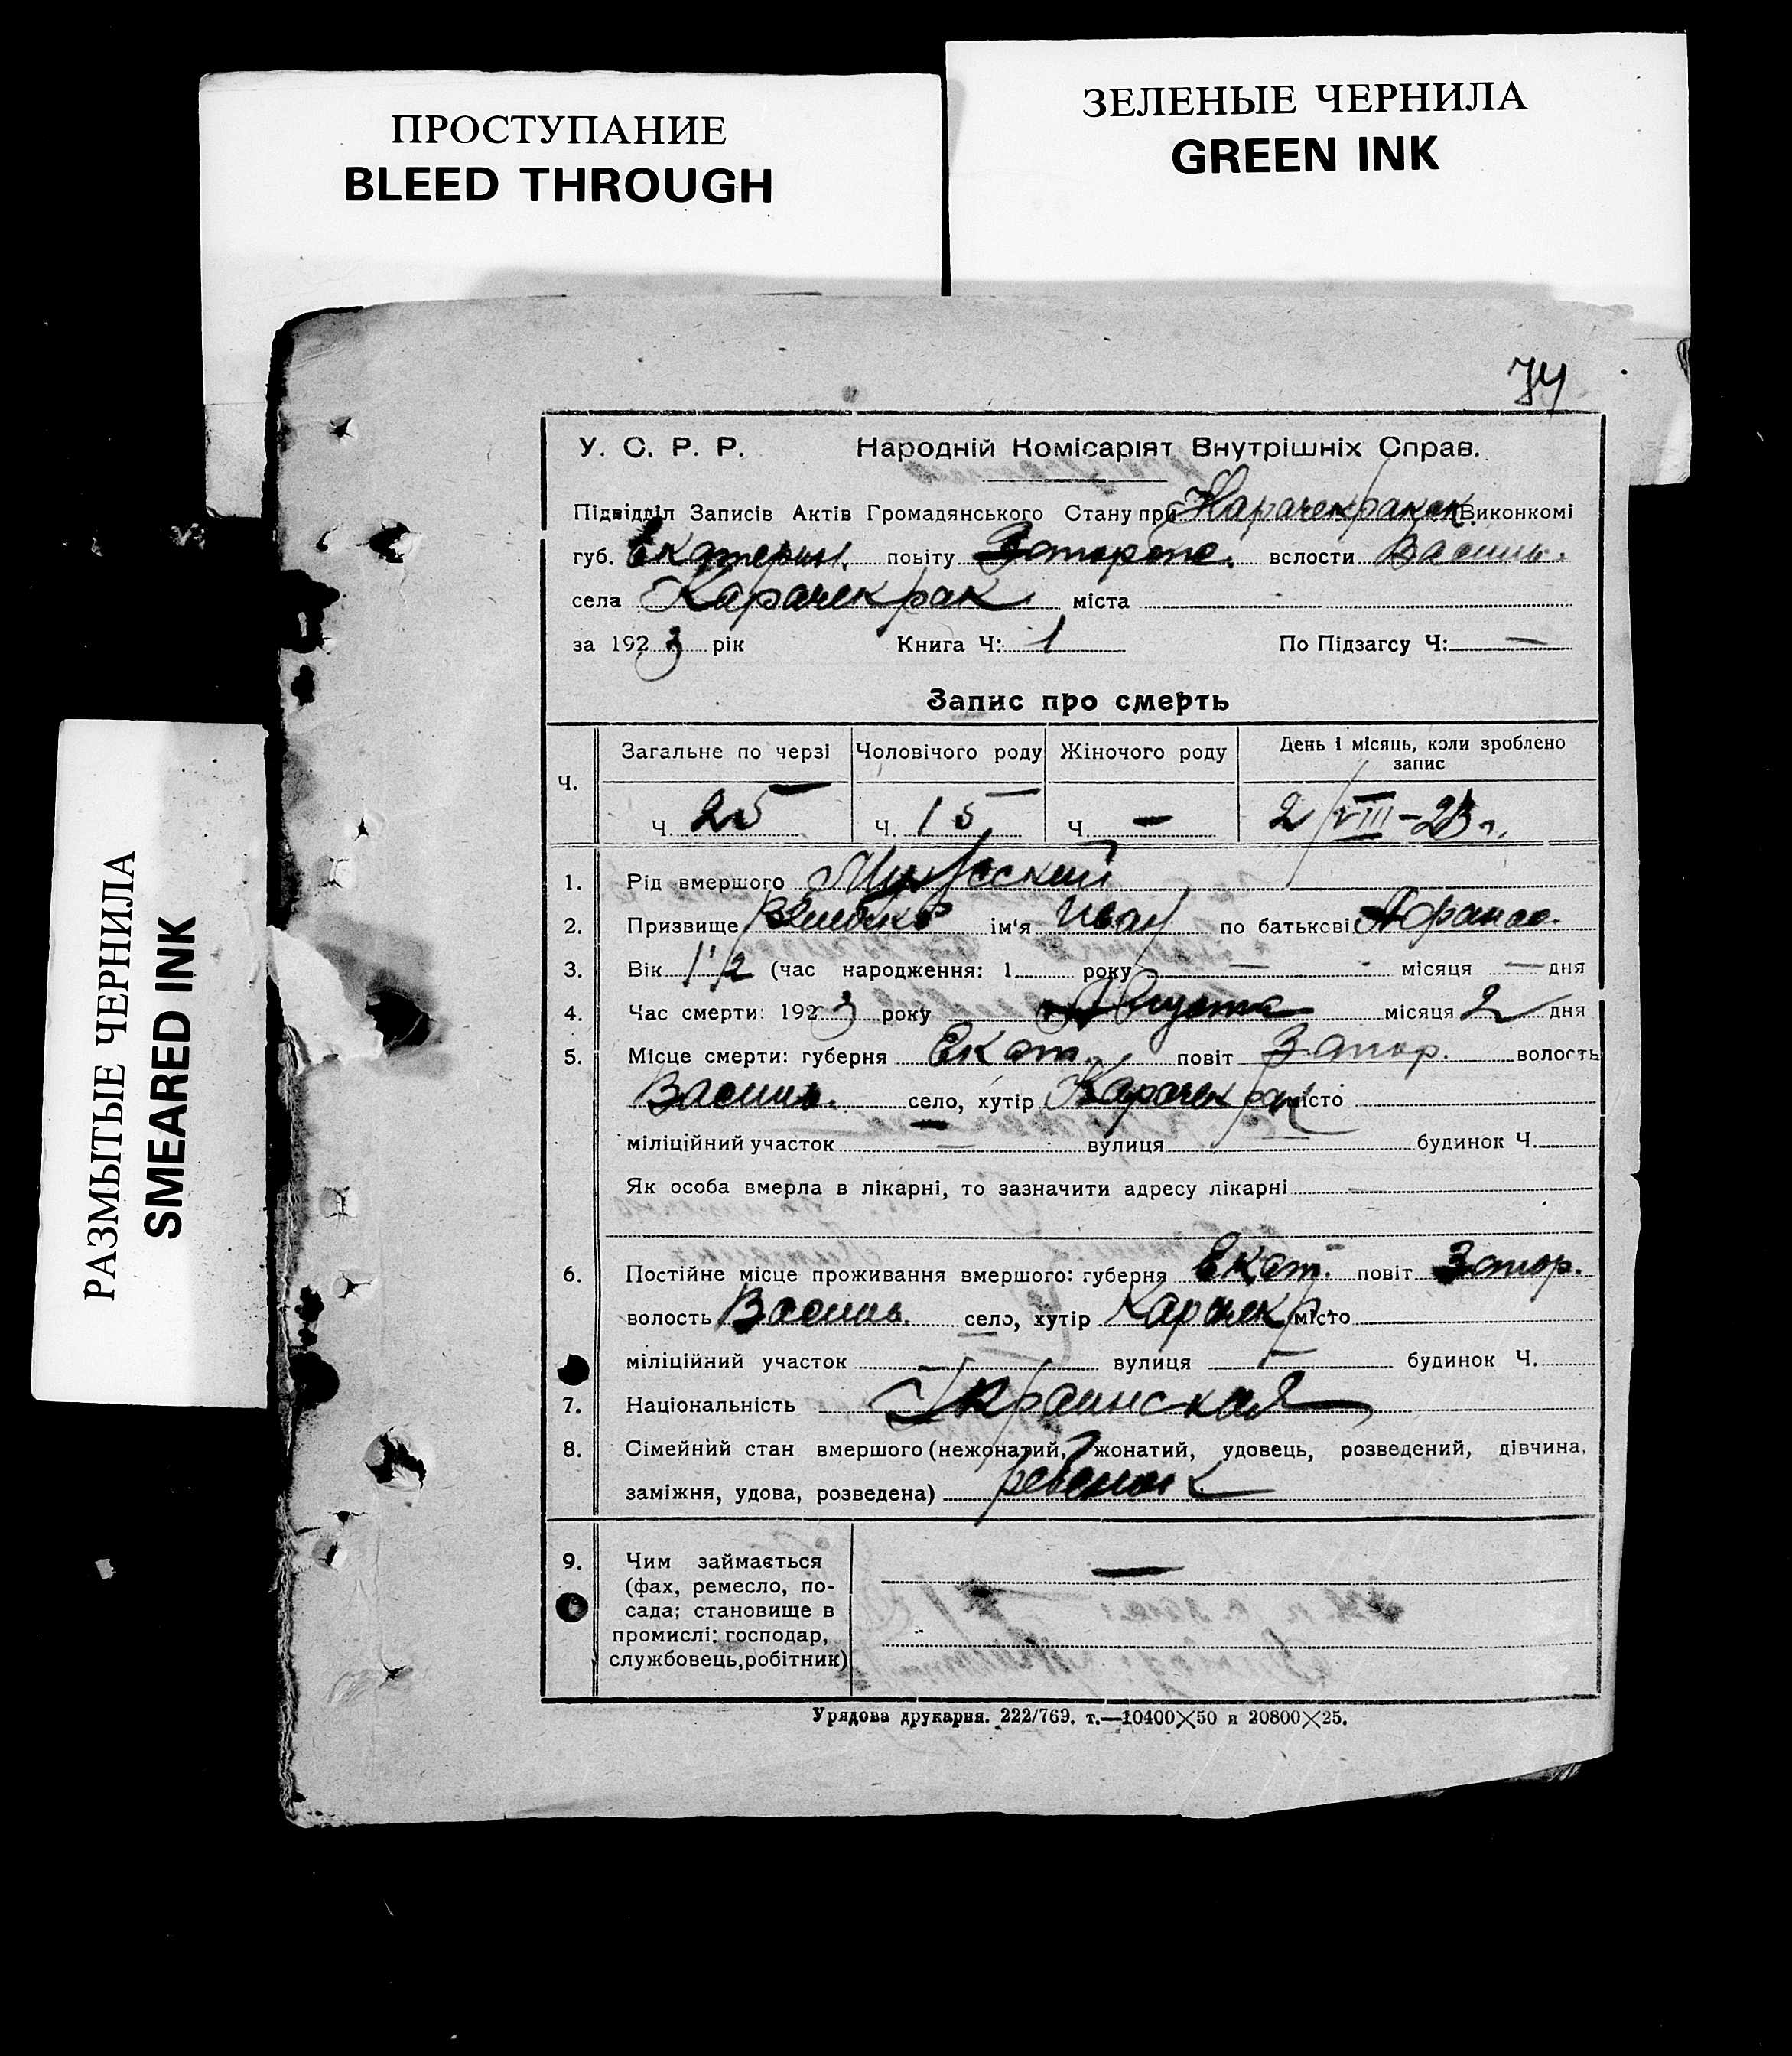 ПРОСТУПАНИЕ
BLEED THROUGH
ЗЕЛЕНЫЕ ЧЕРНИЛА
GREEN INK
РАЗМЫТЫЕ ЧЕРНИЛА
SMEARED INK
74
У. С. Р. Р. Народній Комісаріят Внутрішніх Справ.
Підвідділ Записів Актів Громадянського Стану при Карачекракск. Виконкомі
губ. Екатерин. повіту Запорож. вслости Васил.
села Карачекрак міста
за 1923 рік Книга Ч: 1 По Підзагсу Ч: —
Запис про смерть
Ч. Загальне по черзі Чоловічого роду Жіночого роду День і місяць, коли зроблено запис
Ч. 25 Ч. 15 Ч. — 2/VIII-23 г.
1. Рід вмершого Мужсский
2. Призвище ім'я Иван по батькові Афанас.
3. Вік 1 1/2 (час народження: 1 року — місяця — дня
4. Час смерти: 1923 року Августа місяця 2 дня
5. Місце смерти: губерня Екат. повіт Запор. волость
Васил. село, хутір Карачекрак місто
міліційний участок — вулиця — будинок Ч.
Як особа вмерла в лікарні, то зазначити адресу лікарні —
6. Постійне місце проживання вмершого: губерня Екат. повіт Запор.
волость Васил. село, хутір Карачекр. місто
міліційний участок — вулиця — будинок Ч.
7. Національність Украинская
8. Сімейний стан вмершого (нежонатий, жонатий, удовець, розведений, дівчина,
заміжня, удова, розведена) ребенок
9. Чим займається —
(фах, ремесло, по-
сада; становище в
промислі: господар,
службовець, робітник)
Урядова друкарня. 222/769. т.—10400×50 и 20800×25.